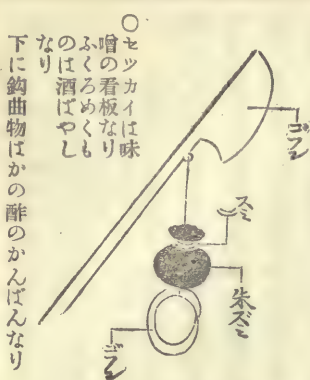 ゴフン
スミ
朱ズミ
ゴフン
〇セツカイは味
噌の看板なり
ふくろめくも
のは酒ばやし
なり
下に鈎曲物はかの酢のかんばんなり